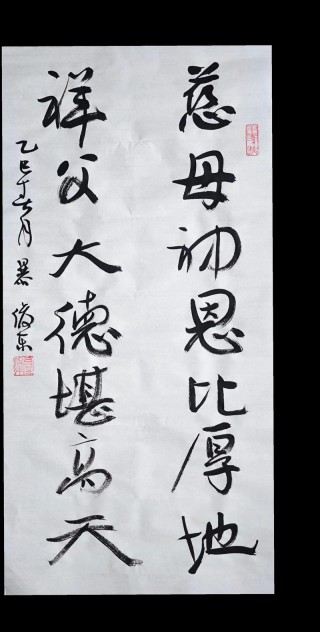 慈母初恩比厚地
祥父大德堪高天
乙巳月俊东